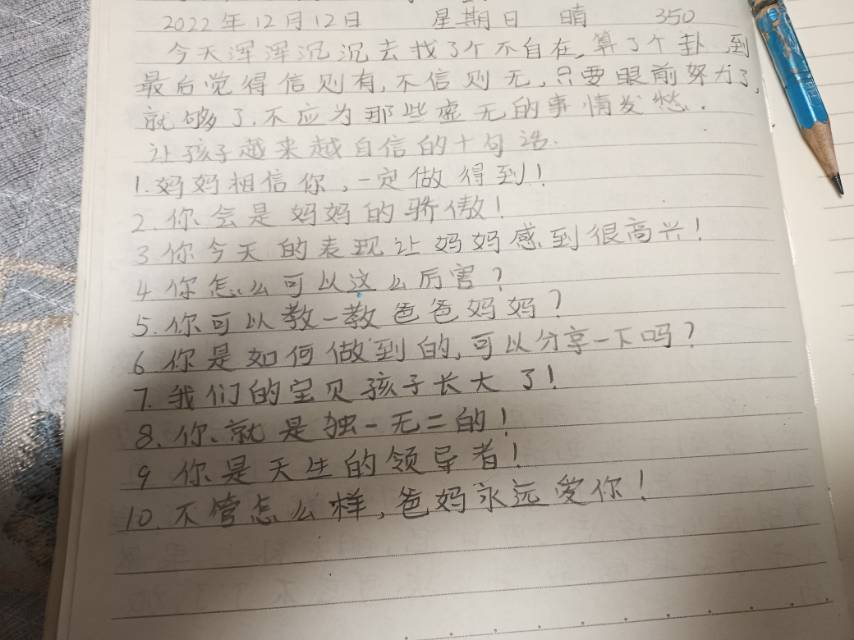 2022年12月12日 星期日 晴 350
今天浑浑沉沉去找了个不自在,算了个卦,到
最后觉得信则有,不信则无,只要眼前努力了,
就够了,不应为那些虚无的事情发愁.
让孩子越来越自信的十句话.
1.妈妈相信你,一定做得到!
2.你会是妈妈的骄傲!
3你今天的表现让妈妈感到很高兴!
4你怎么可以这么厉害?
5.你可以教一教爸爸妈妈?
6你是如何做到的,可以分享一下吗?
7.我们的宝贝孩子长大了!
8.你就是独一无二的!
9你是天生的领导者!
10.不管怎么样,爸妈永远爱你!